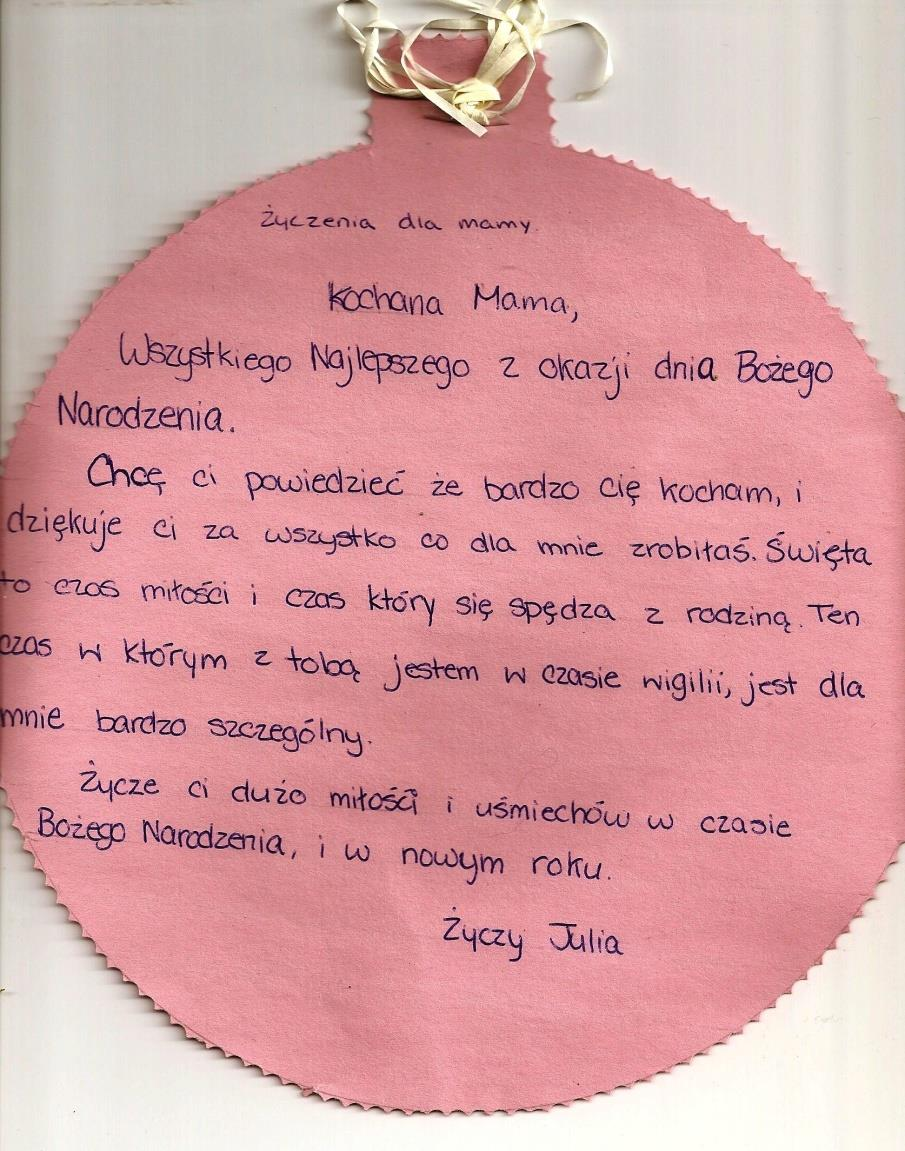 życzenia dla mamy.
Kochana Mama,
Wszystkiego Najlepszego z okazji dnia Bożego
Narodzenia.
Chcę ci powiedzieć że bardzo cię kocham, i
dziękuje ci za wszystko co dla mnie zrobiłaś. Święta
to czas miłości i czas który się spędza z rodziną. Ten
czas w którym z tobą jestem w czasie wigilii, jest dla
mnie bardzo szczególny.
Życze ci dużo miłości i uśmiechów w czasie
Bożego Narodzenia, i w nowym roku.
Życzy Julia